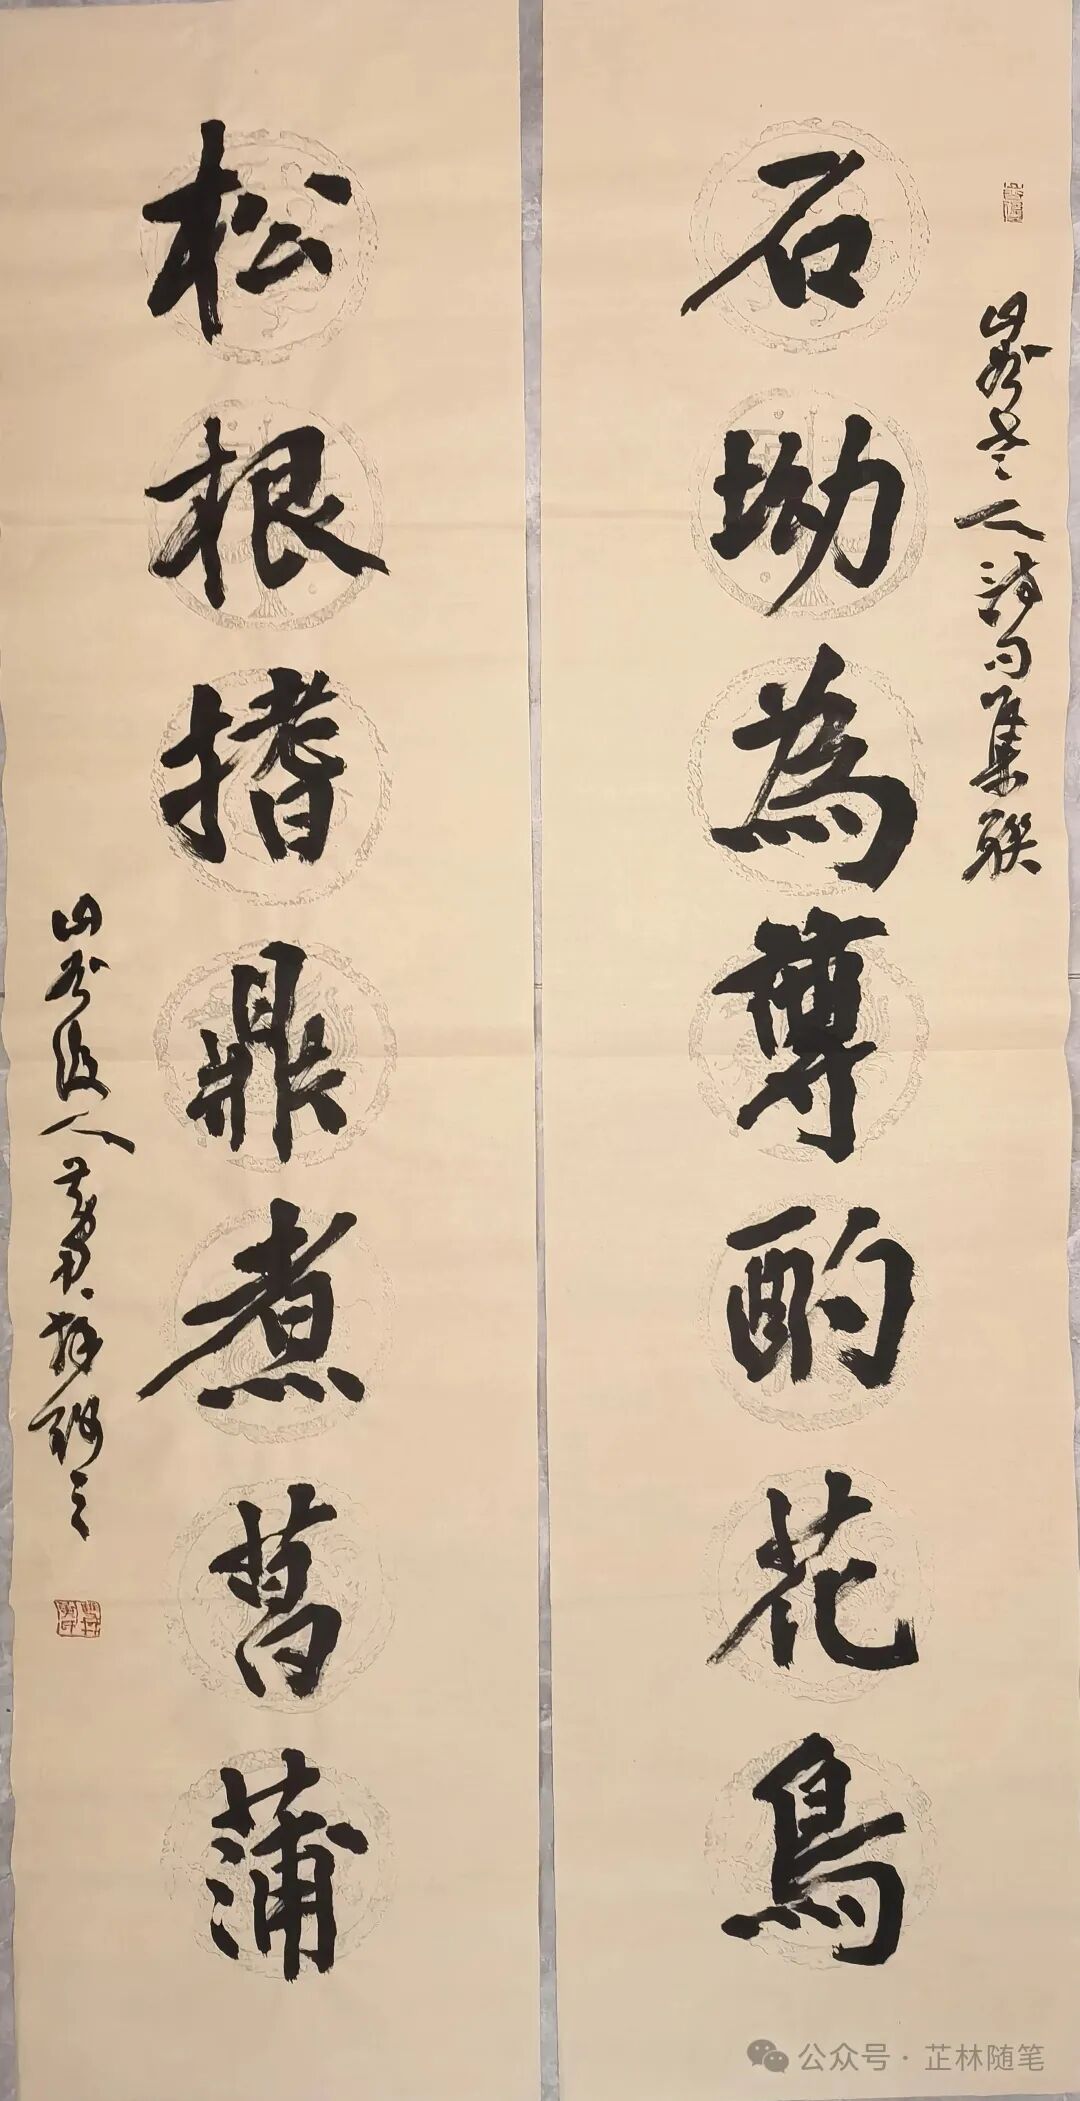 石坳為尊酌花鳥
山谷老人詩句集联
松根揩鼎煮菖蒲
山谷後人
公众号·芷林随笔